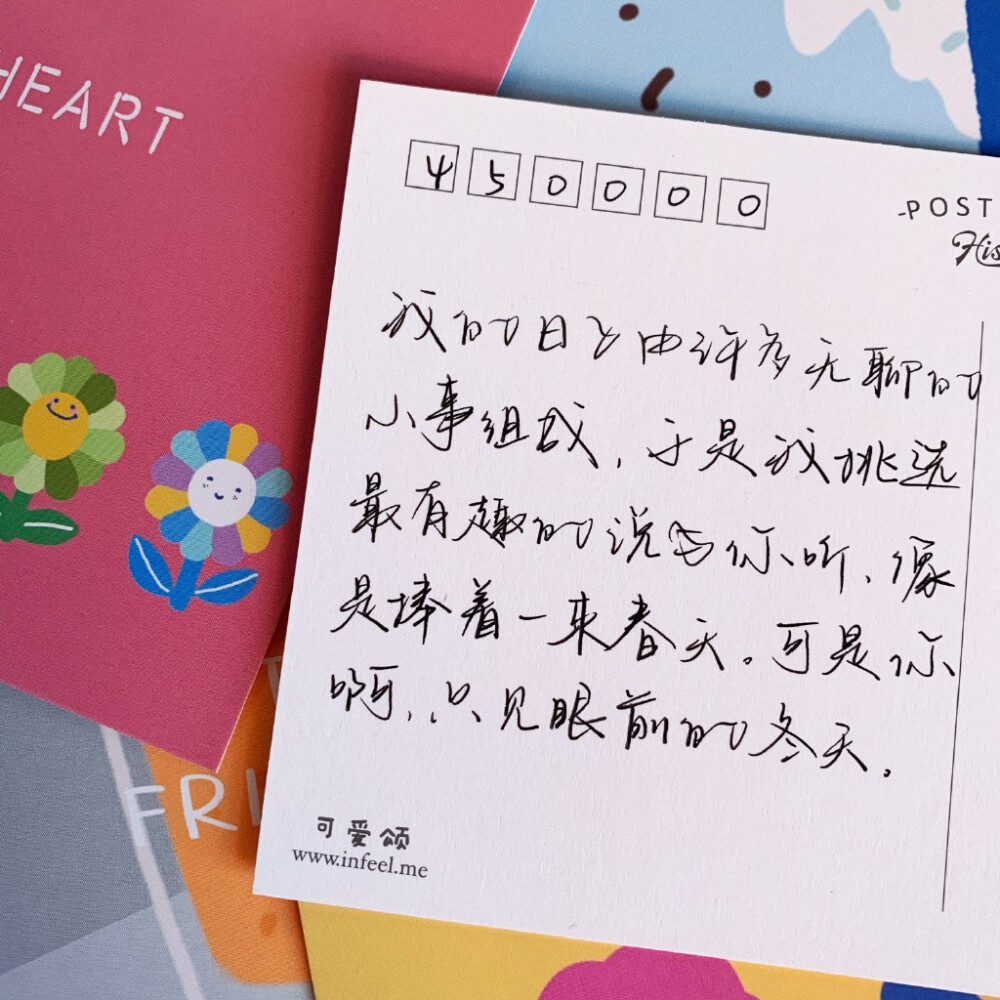 HEART
450000
-POST
His
我的日子由许多无聊的
小事组成，于是我挑选
最有趣的说与你听，像
是捧着一束春天。可是你
啊，只见眼前的冬天。
可爱颂
www.infeel.me
FRI